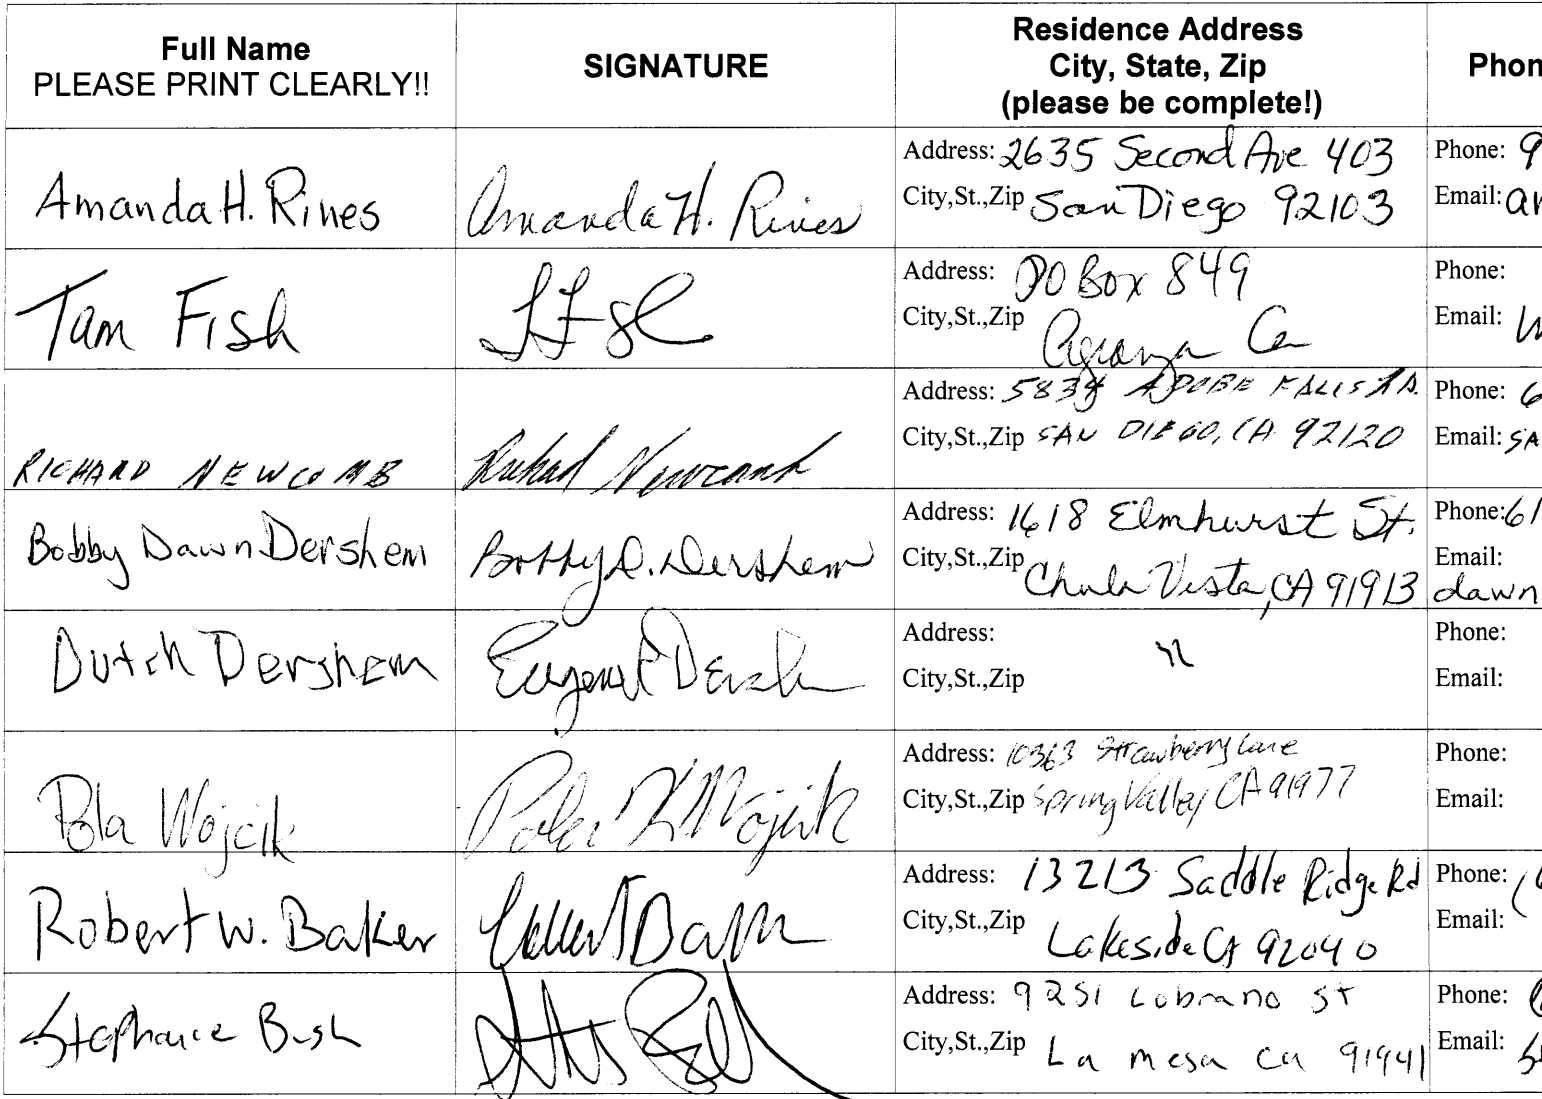 Full Name
PLEASE PRINT CLEARLY!!
SIGNATURE
Residence Address
City, State, Zip
(please be complete!)
Phon
Amanda H. Rines
Amanda H. Rines
Address: 2635 Second Ave 403
City,St.,Zip San Diego 92103
Phone: 9
Email: an
Tam Fish
Address: PO Box 849
City,St.,Zip Ca
Phone:
Email:
RICHARD NEWCOMB
Richard Newcomb
Address: 5834 ADOBE FALLS RD.
City,St.,Zip SAN DIEGO, CA 92120
Phone: 6
Email: SA
Bobby Dawn Dershem
Bobby D. Dershem
Address: 1618 Elmhurst St.
City,St.,Zip Chula Vista, CA 91913
Phone: 61
Email: dawn
Dutch Dershem
Eugene Dersh
Address: "
City,St.,Zip
Phone:
Email:
Pola Wojcik
Pola K Wojcik
Address: 10363 Strawberry Lane
City,St.,Zip Spring Valley CA 91977
Phone:
Email:
Robert W. Baker
Address: 13213 Saddle Ridge Rd
City,St.,Zip Lakeside CA 92040
Phone: (
Email:
Stephanie Bush
Address: 9251 Lobrano St
City,St.,Zip La mesa ca 91941
Phone:
Email: